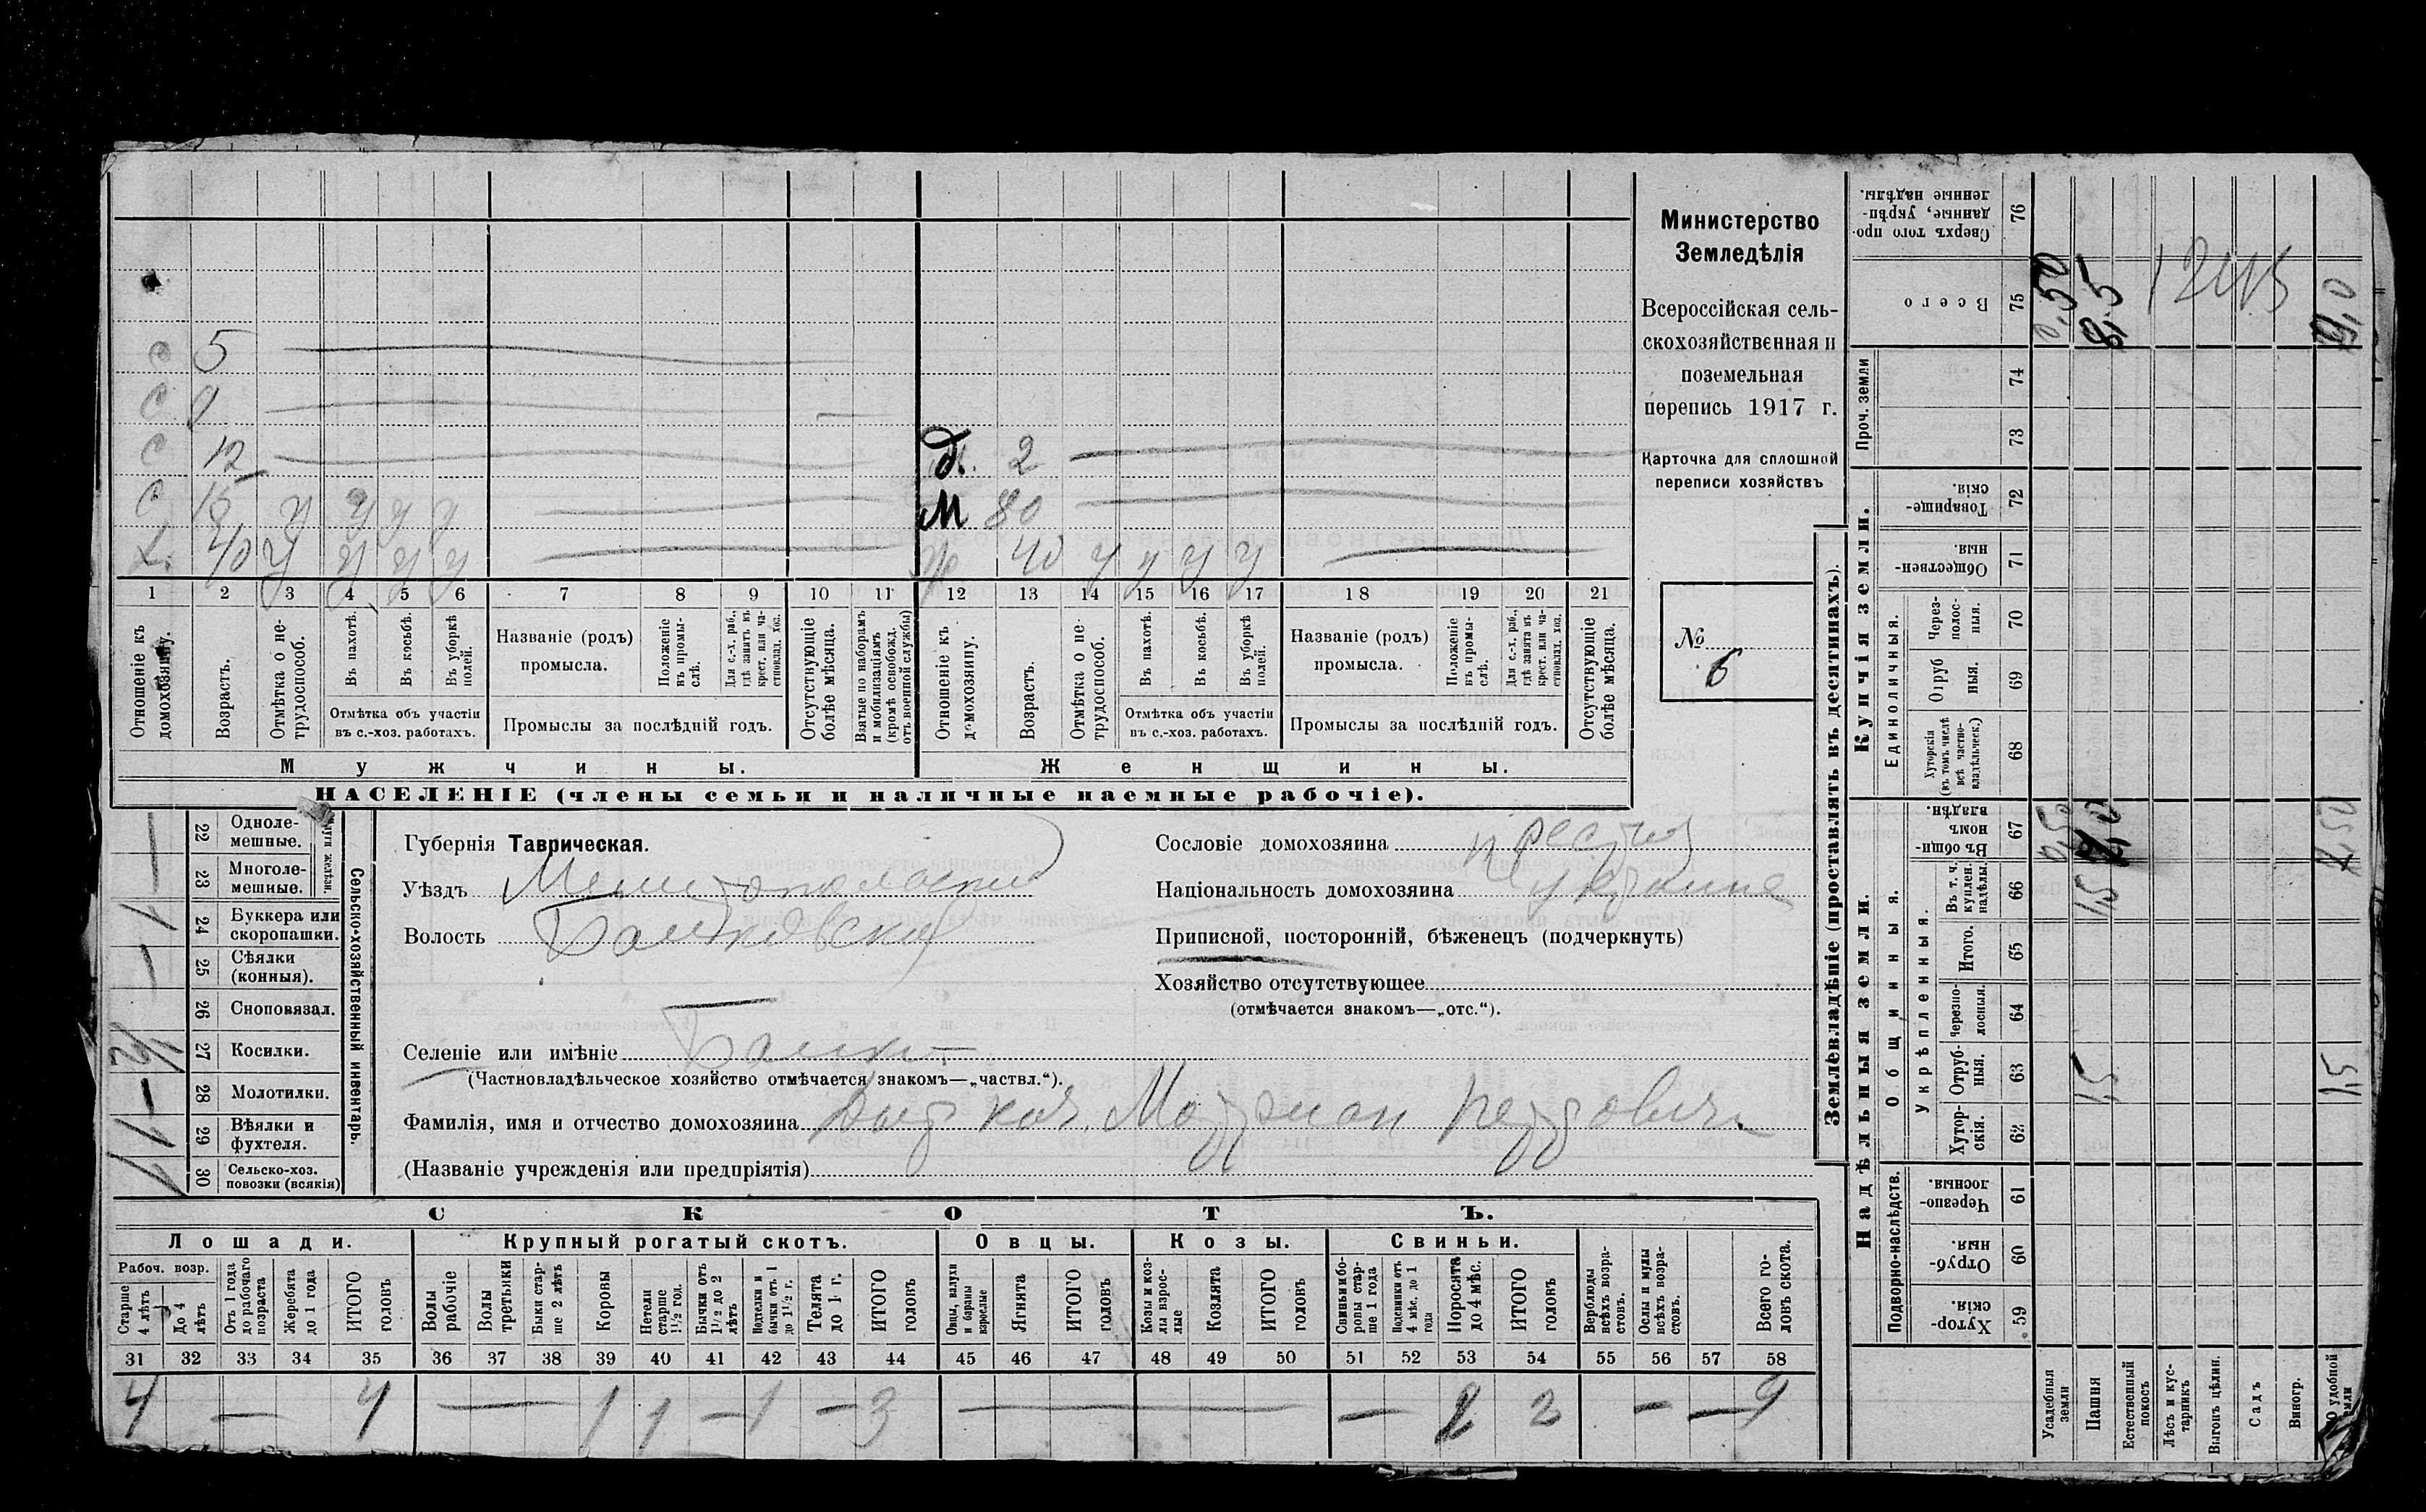 Министерство
Земледѣлія
Всероссійская сель-
скохозяйственная и
поземельная
перепись 1917 г.
Карточка для сплошной
переписи хозяйствъ
№ 6
с 5
с 9
с 12
с 15 у у у у
х. 40 у у у у
д. 2
м 80
ж 40 у у у у
1 2 3 4 5 6 7 8 9 10 11 12 13 14 15 16 17 18 19 20 21
Отношеніе къ домохозяину.
Возрастъ.
Отмѣтка о не-трудоспособ.
Въ пахотѣ.
Въ косьбѣ.
Въ уборкѣ полей.
Отмѣтка объ участіи въ с.-хоз. работахъ.
Названіе (родъ) промысла.
Положеніе въ промы-слѣ.
Для с.-х. раб., гдѣ занятъ въ крест. или ча-стновлад. хоз.
Промыслы за послѣдній годъ.
Отсутствующіе болѣе мѣсяца.
Взятые по наборамъ и мобилизаціямъ (кромѣ освобожд. отъ военной службы)
Отношеніе къ домохозяину.
Возрастъ.
Отмѣтка о не-трудоспособ.
Въ пахотѣ.
Въ косьбѣ.
Въ уборкѣ полей.
Отмѣтка объ участіи въ с.-хоз. работахъ.
Названіе (родъ) промысла.
Положеніе въ промы-слѣ.
Для с.-х. раб., гдѣ занята въ крест. или ча-стновлад. хоз.
Промыслы за послѣдній годъ.
Отсутствующіе болѣе мѣсяца.
Мужчины.
Женщины.
НАСЕЛЕНІЕ (члены семьи и наличные наемные рабочіе).
22 Одноле-мешные.
23 Многоле-мешные.
24 Буккера или скоропашки. 1
25 Сѣялки (конныя).
26 Сноповязал.
27 Косилки. 1/2
28 Молотилки.
29 Вѣялки и фухтеля. 1
30 Сельско-хоз. повозки (всякія) 1
Сельско-хозяйственный инвентарь.
Губернія Таврическая.
Уѣздъ Мелитопольскій
Волость Балковская
Селеніе или имѣніе Балки
(Частновладѣльческое хозяйство отмѣчается знакомъ—„частвл.“).
Фамилія, имя и отчество домохозяина
(Названіе учрежденія или предпріятія)
Сословіе домохозяина
Національность домохозяина
Приписной, посторонній, бѣженецъ (подчеркнуть)
Хозяйство отсутствующее
(отмѣчается знакомъ—„отс.“).
СКОТЪ.
Лошади.
Крупный рогатый скотъ.
Овцы.
Козы.
Свиньи.
Рабоч. возр.
Старше 4 лѣтъ
До 4 лѣтъ
Отъ 1 года до рабочаго возраста
Жеребята до 1 года
ИТОГО головъ
Волы рабочіе
Волы третьяки
Быки стар-ше 2 лѣтъ
Коровы
Нетели старше 1½ год.
Бычки отъ 1½ до 2 лѣтъ
Подтелки и бычки отъ 1 до 1½ г.
Телята до 1 г.
ИТОГО головъ
Овцы, валухи и бараны взрослые
Ягнята
ИТОГО головъ
Козы и коз-лы взрос-лые
Козлята
ИТОГО головъ
Свиньи и бо-ровы стар-ше 1 года
Подсвинки отъ 4 мѣс. до 1 года
Поросята до 4 мѣс.
ИТОГО головъ
Верблюды всѣхъ возра-стовъ.
Ослы и мулы всѣхъ возра-стовъ.
Всего го-ловъ скота.
31 32 33 34 35 36 37 38 39 40 41 42 43 44 45 46 47 48 49 50 51 52 53 54 55 56 57 58
4 — 4 — 1 1 — 1 — 3 — — 2 2 — — 9
Землевладѣніе (проставлять въ десятинахъ).
Надѣльныя земли.
Купчія земли.
Проч. земли
Подворно-наслѣдств.
Общинныя.
Укрѣпленныя.
Единоличныя.
59 Хутор-скія.
60 Отруб-ныя.
61 Черезпо-лосныя.
62 Хутор-скія.
63 Отруб-ныя. 1,5 1,5
64 Черезпо-лосныя.
65 Итого.
66 Въ т. ч. куплен. надѣлы. 1,5
67 Въ общи-номъ владѣн. 0,50
68 Хуторскія (въ томъ числѣ всѣ частно-владѣльческ.)
69 Отруб ныя.
70 Через-полос-ныя.
71 Обществен-ныя.
72 Товарище-скія.
73
74
75 Всего 0,50 8,5 9,0
76 Сверхъ того про-данные, укрѣп-ленные надѣлы.
Усадебныя земли
Пашня
Естественный покосъ
Лѣсъ и кус-тарникъ
Выгонъ цѣлин.
Садъ
Виногр.
удобной земли